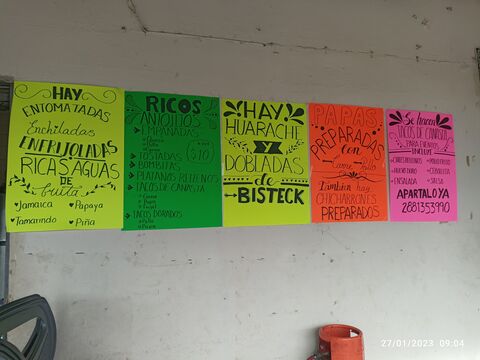 HAY
ENTOMATADAS
Enchiladas
ENFRIJOLADAS
RICAS AGUAS
DE
fruta
Jamaica
Papaya
Tamarindo
Piña
RICOS
ANTOJITOS
EMPANADAS
$10
TOSTADAS
BOMBITAS
PLATANOS RELLENOS
TACOS DE CANASTA
TACOS DORADOS
HAY
HUARACHE
Y
DOBLADAS
de
BISTECK
PAPAS
PREPARADAS
con
Carne
Pollo
También hay
CHICHARRONES
PREPARADOS
Se hacen
TACOS DE CANASTA
PARA EVENTOS
INCLUYE
HUEVO DURO
CEBOLLITA
ENSALADA
SALSA
APARTALO YA
2881353990
27/01/2023 09:04